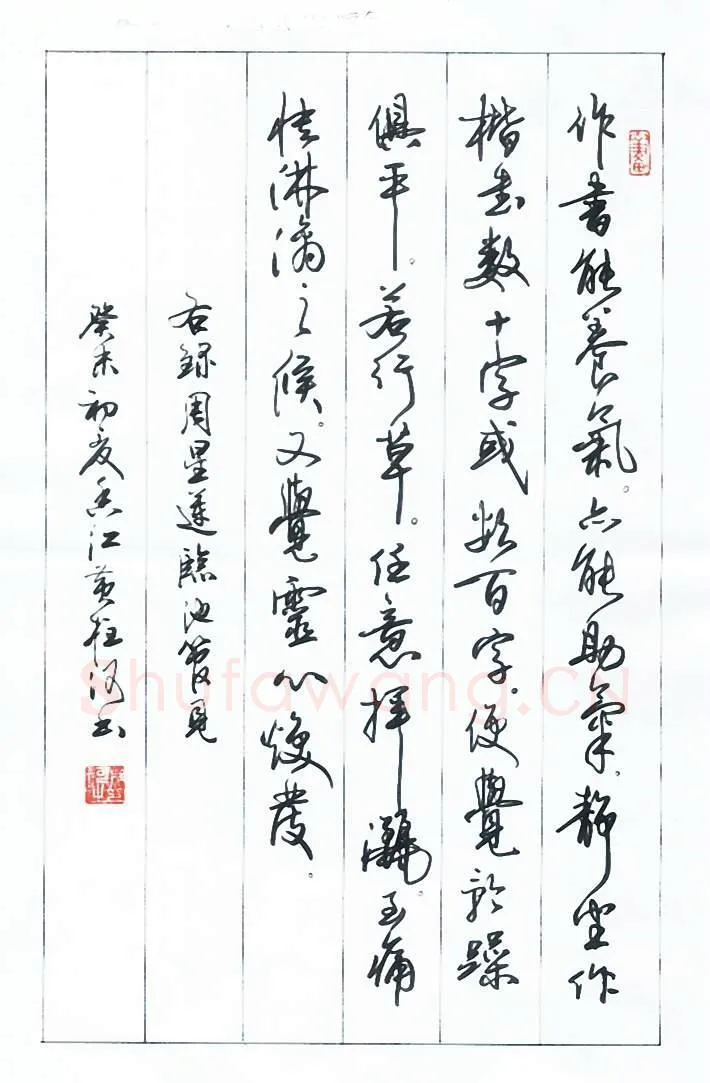 作書能養氣。亦能助氣。靜坐作
楷書數十字或數百字。便覺矜躁
俱平。若行草。任意揮灑。至痛
快淋漓之候。又覺靈心煥發。
右錄周星蓮臨池管見
癸未初夏香江黃書
Shufawang.CN